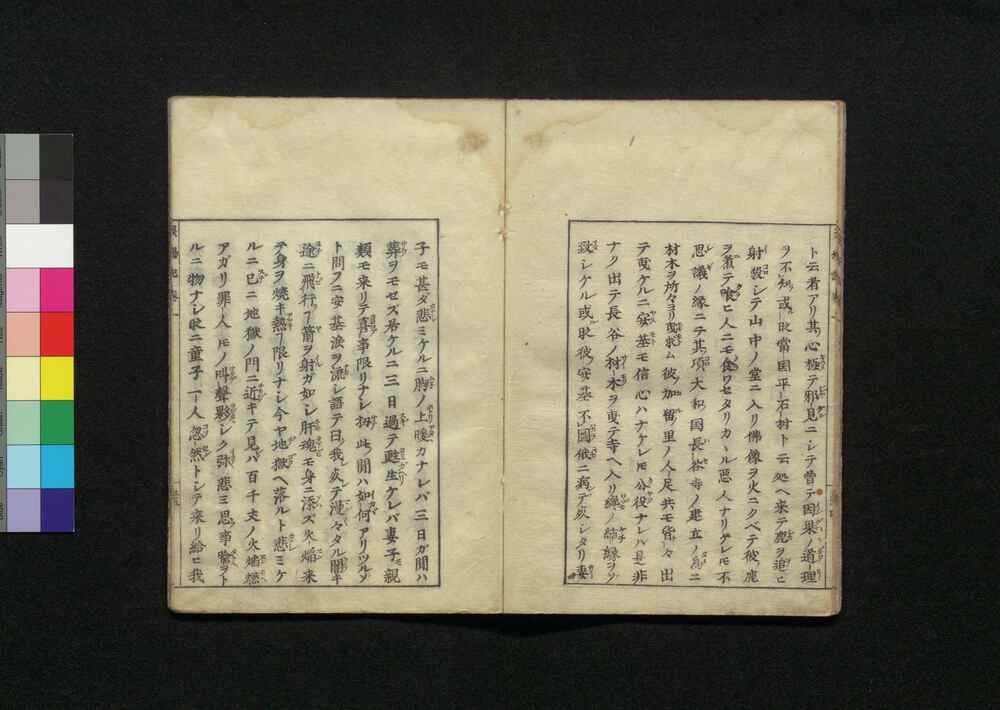 ト云者アリ其心極テ邪見ニシテ曽テ因果ノ道理
ヲ不知或时常国平石村ト云処ヘ来テ鹿ヲ追ヒ
射殺シテ山中ノ堂ニ入リ佛像ヲ火ニクベテ彼鹿
ヲ煮テ喰ヒ人ニモ食ワセタリカヽル悪人ナリケレ𪜈不
思議ノ縁ニテ其項大和国長谷寺ノ建立ノ為ニ
材木ヲ所々ヨリ曳求ム彼加留ノ里ノ人足共モ皆々出
テ曳ケルニ安基モ信心ハナケレ𪜈公役ナレバ是非
ナク出テ長谷ノ材木ヲ曳テ寺ヘ入リ縄ノ結縁ヲソ
致シケル或时彼安基不図俄ニ病テ死シタリ妻
子モ甚ダ悲ミケルニ胸ノ上暖カナレバ三日ガ間ハ
葬ヲモセズ居ケルニ三日過テ甦生ケレバ妻子親
類モ来リテ喜事限リナシ扨此ノ間ハ如何アリツルゾ
ト問フニ安基涙ヲ流シ語テ曰我死テ漫々タル闇キ
途ニ飛行丁箭ヲ射ガ如シ肝魂モ身ニ添ズ火焔来
テ身ヲ焼キ熱丁限リナシ今ヤ地獄ヘ落ルト悲ミケ
ルニ已ニ地獄ノ門ニ近キテ見バ百千丈ノ火焔燃
アガリ罪人𪜈ノ叫聲夥シク弥悲ミ思事喩ヲト
ルニ物ナシ时ニ童子一人忽然トシテ来リ給ヒ我